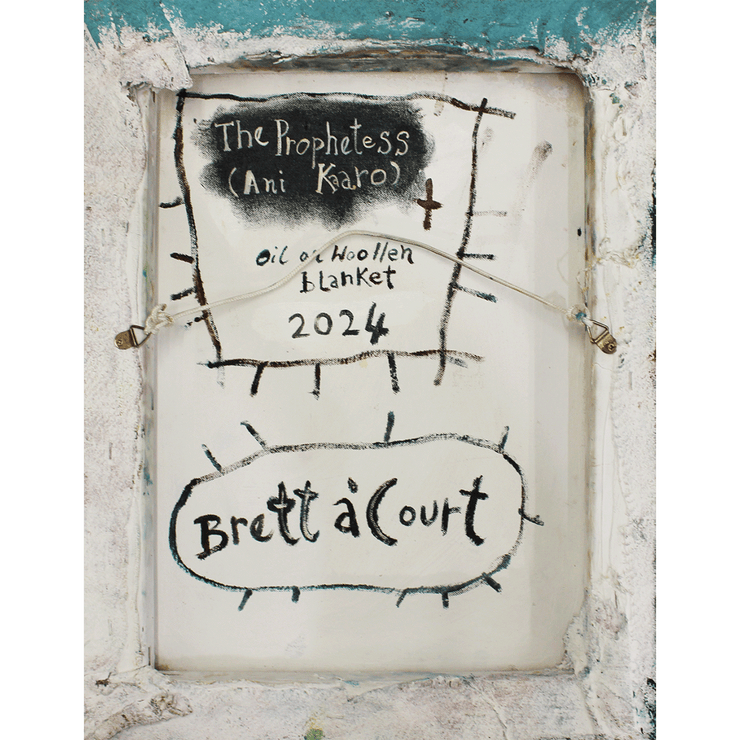 The Prophetess
(Ani Kaaro)
oil on Woollen
blanket
2024
Brett à Court